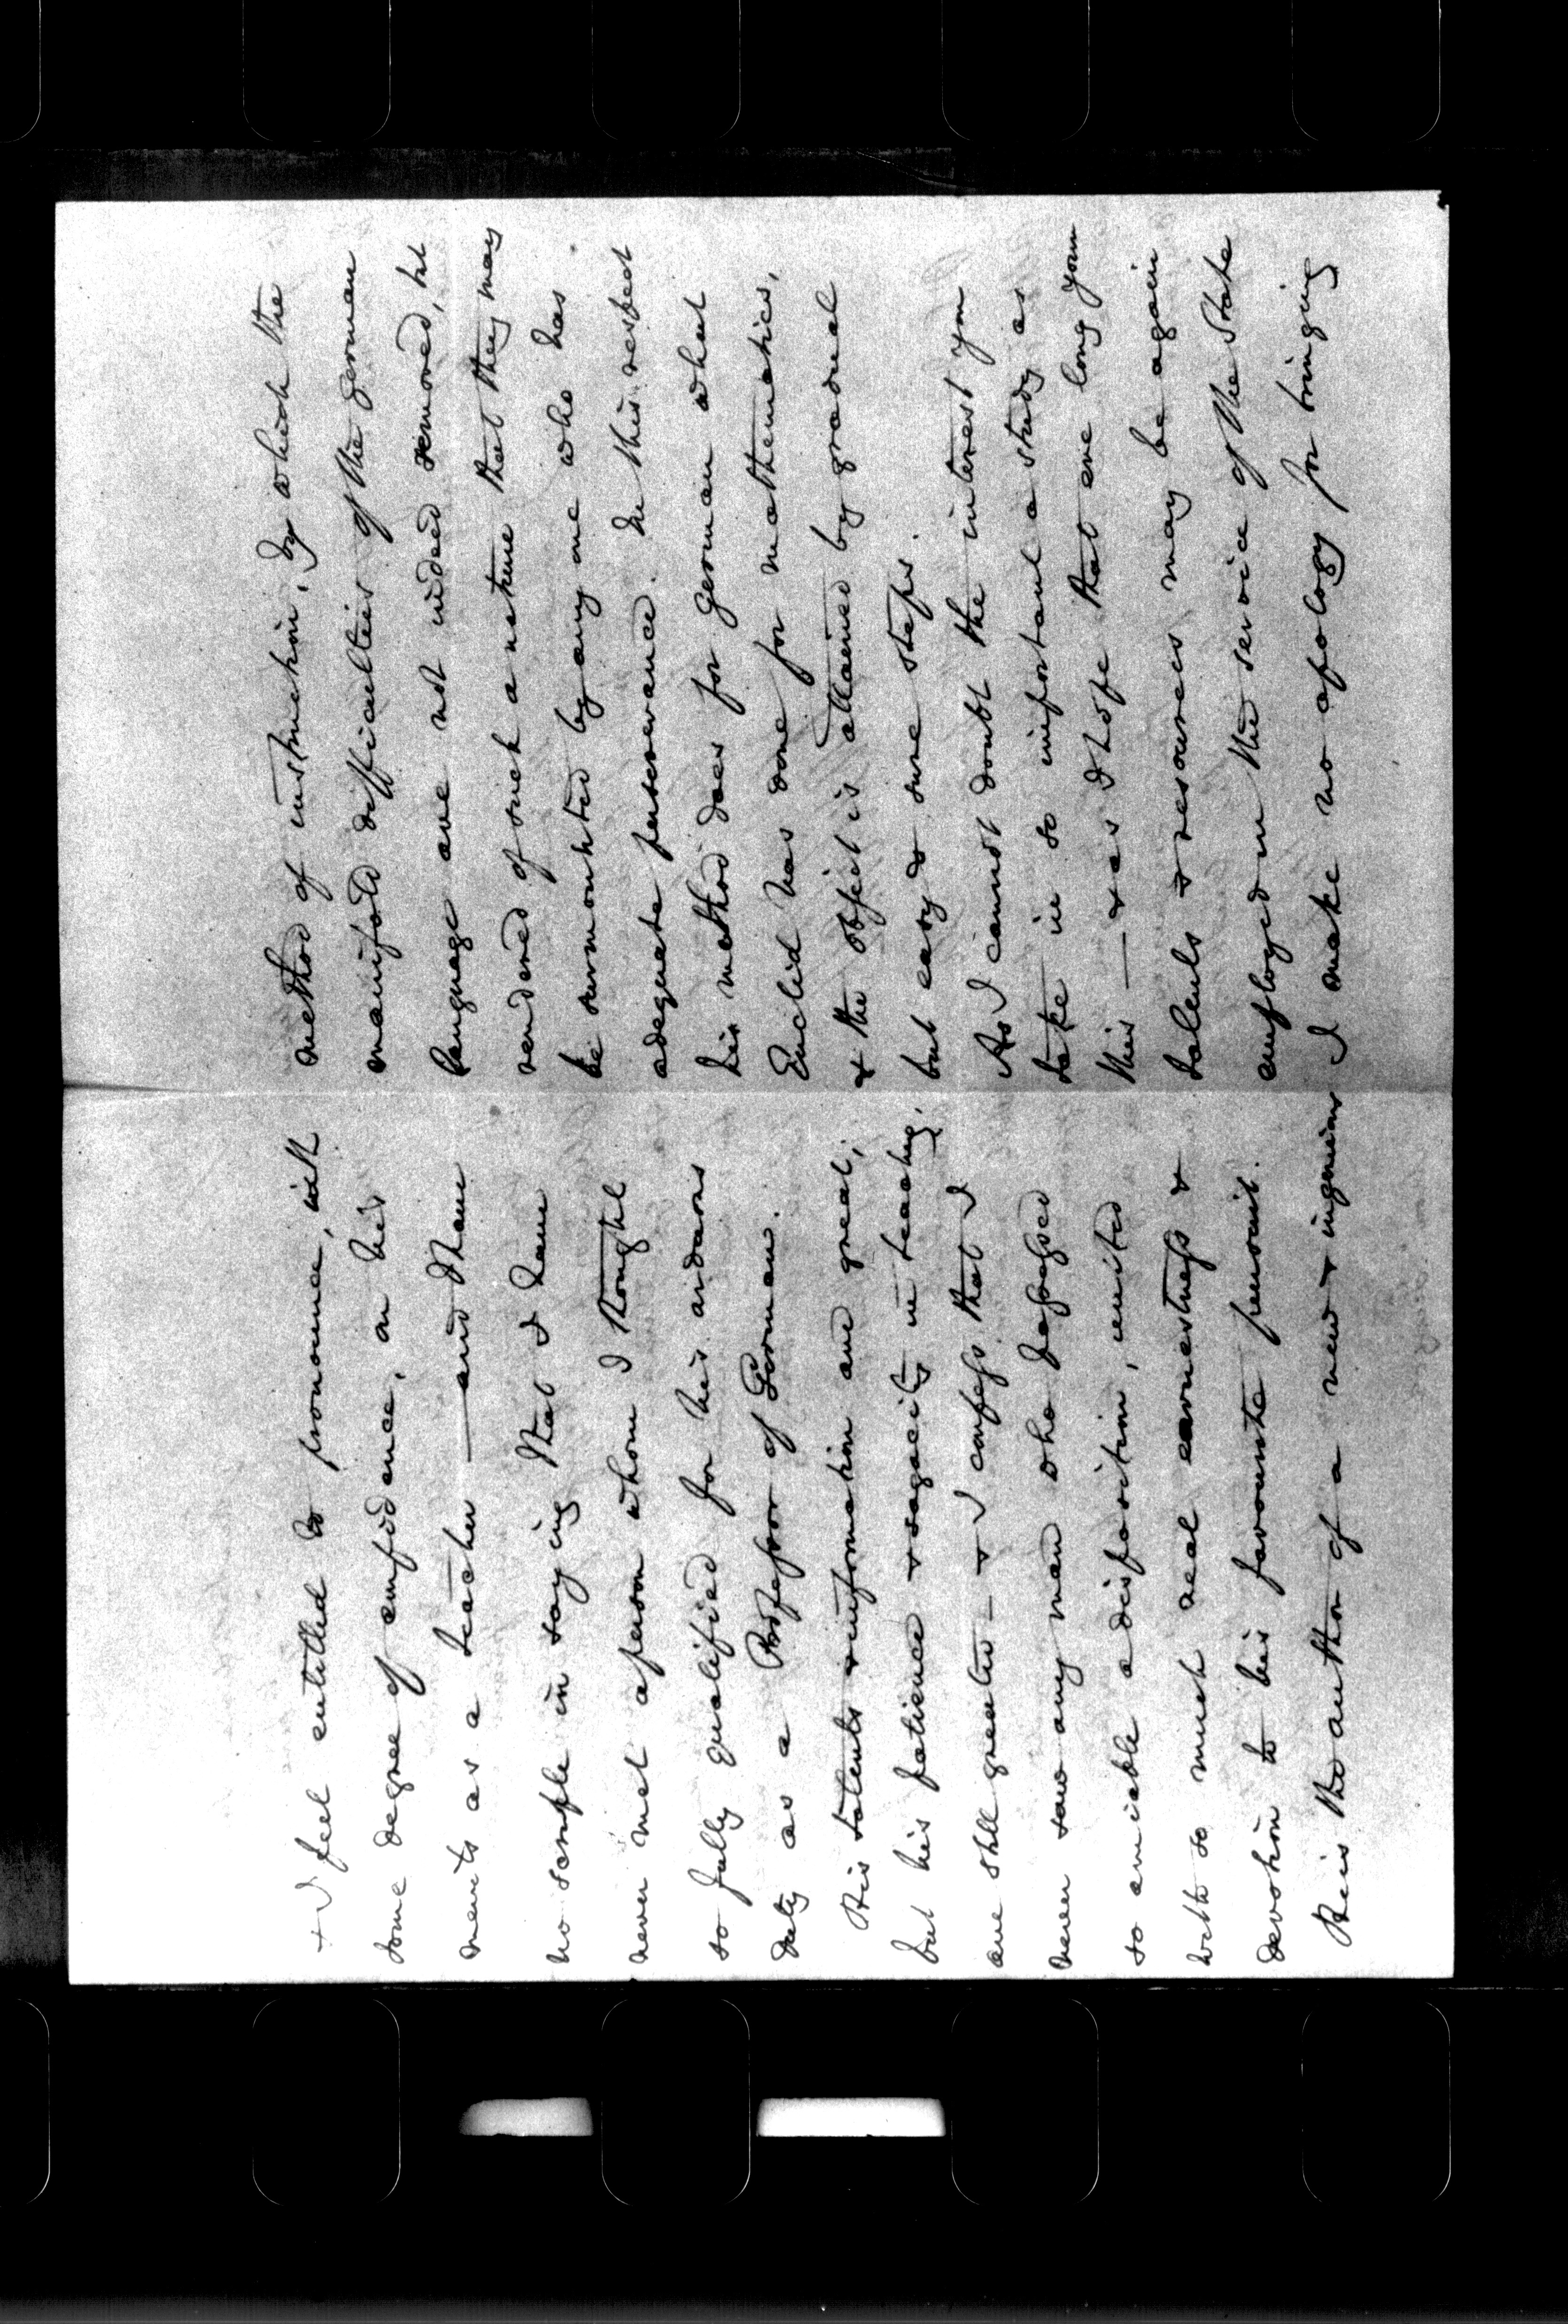 & I feel entitled to pronounce, with
some degree of confidence, on his
merits as a teacher — and I have
no scruple in saying that I have
never met a person whom I thought
so fully qualified for his arduous
duty as a Professor of German.
His talents & information are great,
but his patience & sagacity in teaching,
are still greater – & I confess that I
never saw any man who possessed
so amiable a disposition, united
with so much real earnestness &
devotion to his favourite pursuit.
He is the author of a new & ingenious
method of instruction, by which the
manifold difficulties of the German
language are not indeed removed, but
rendered of such a nature that they may
be surmounted by any one who has
adequate perseverance. In this respect
his method does for German what
Euclid has done for mathematics,
& the object is attained by gradual
but easy & sure steps.
As I cannot doubt the interest you
take in so important a study as
this — & as I hope that ere long your
talents & resources may be again
employed in the service of the State
I make no apology for bringing